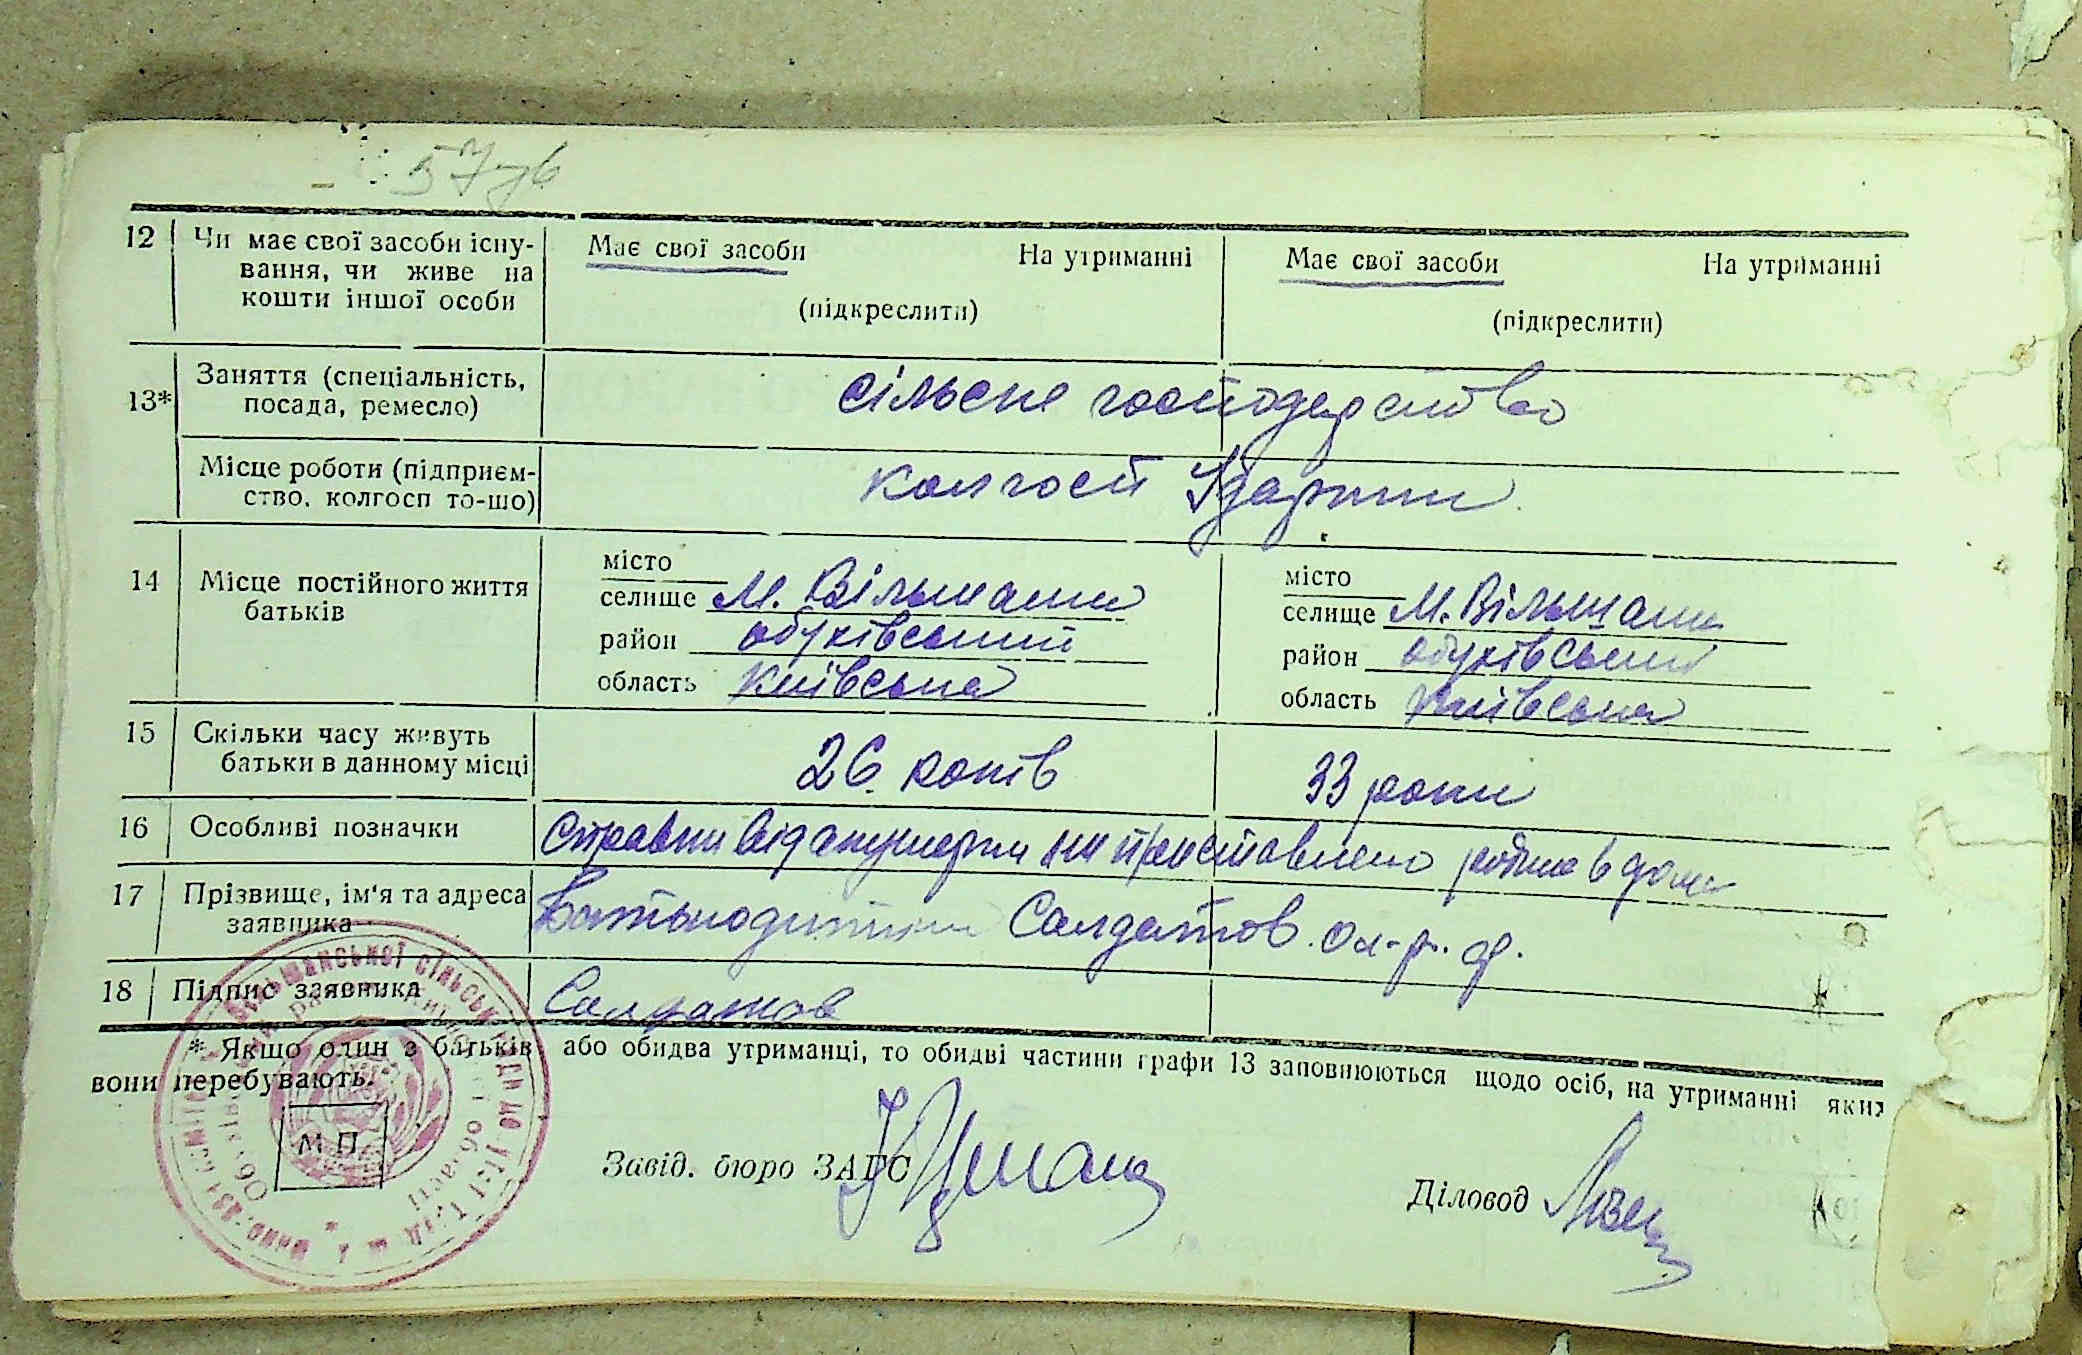 57 зв
12 Чи має свої засоби існу- Має свої засоби На утриманні Має свої засоби На утриманні
вання, чи живе на
кошти іншої особи (підкреслити) (підкреслити)
13* Заняття (спеціальність, сільське господарство
посада, ремесло)
Місце роботи (підприєм- колгосп Ударник
ство, колгосп то-що)
14 Місце постійного життя місто місто
батьків селище м. Вільшани селище м. Вільшани
район обухівський район обухівський
область київська область київська
15 Скільки часу живуть 26 років 33 роки
батьки в данному місці
16 Особливі позначки Справки від акушерки не приставлено родила в дома
17 Прізвище, ім'я та адреса Батько дитини Салдатов
заявника
18 Підпис заявника Салдатов
* Якщо один з батьків або обидва утриманці, то обидві частини графи 13 заповнюються щодо осіб, на утриманні яких
вони перебувають.
М П. Завід. бюро ЗАГС
Діловод